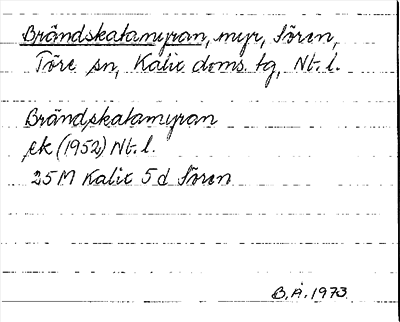 Brändskatamyran, myr, Sören,
Töre sn, Kalix doms. tg, Nt. l.
Brändskatamyran
ek (1952) Nt. l.
25M Kalix 5 d Sören
B.Å. 1973